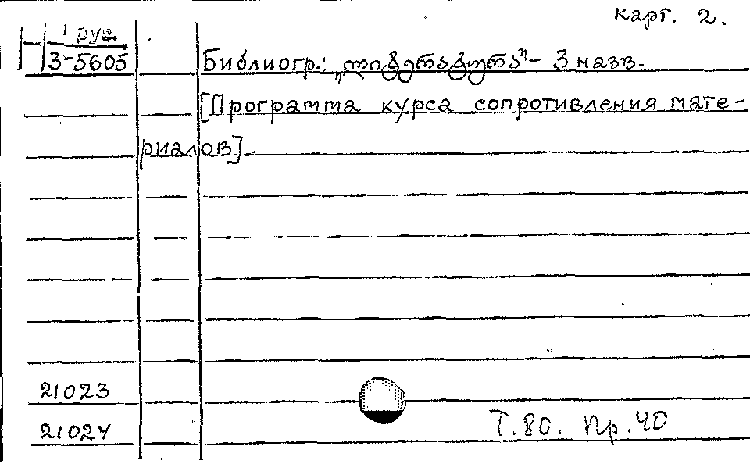 карт. 2.
1 руд
3-5605
Библиогр.: „ლიტერატურა" - 3 назв.
[Программа курса сопротивления мате-
риалов].
21023
21024
Т.80. Пр.40